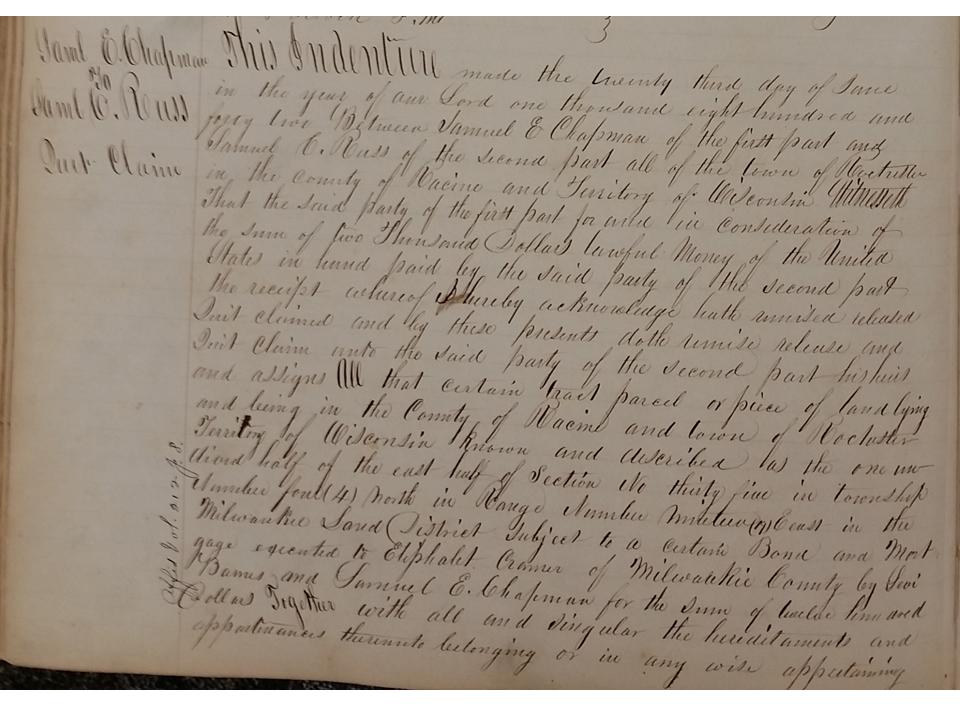 Saml E. Chapman
To
Saml C. Russ
Quit Claim
This Indenture made the twenty third day of June
in the year of our Lord one thousand eight hundred and
forty two Between Samuel E Chapman of the first part and
Samuel C. Russ of the second part all of the town of Rochester
in the county of Racine and Territory of Wisconsin Witnesseth
That the said party of the first part for and in consideration of
the sum of two Thousand Dollars lawful Money of the United
States in hand paid by the said party of the second part
the receipt whereof is hereby acknowledge hath remised released
Quit claimed and by these presents doth remise release and
Quit claim unto the said party of the second part his heirs
and assigns All that certain tract parcel or piece of land lying
and being in the County of Racine and town of Rochester
Territory of Wisconsin known and described as the one un-
divid half of the east half of Section No thirty five in township
Number four (4) North in Range Number nineteen east in the
Milwaukie Land District Subject to a certain Bond and Mort
gage executed to Eliphalet Cramer of Milwaukie County by Levi
Barnes and Samuel E. Chapman for the sum of twelve hundred
Dollars Together with all and singular the hereditaments and
appertinances thereunto belonging or in any wise appertaining